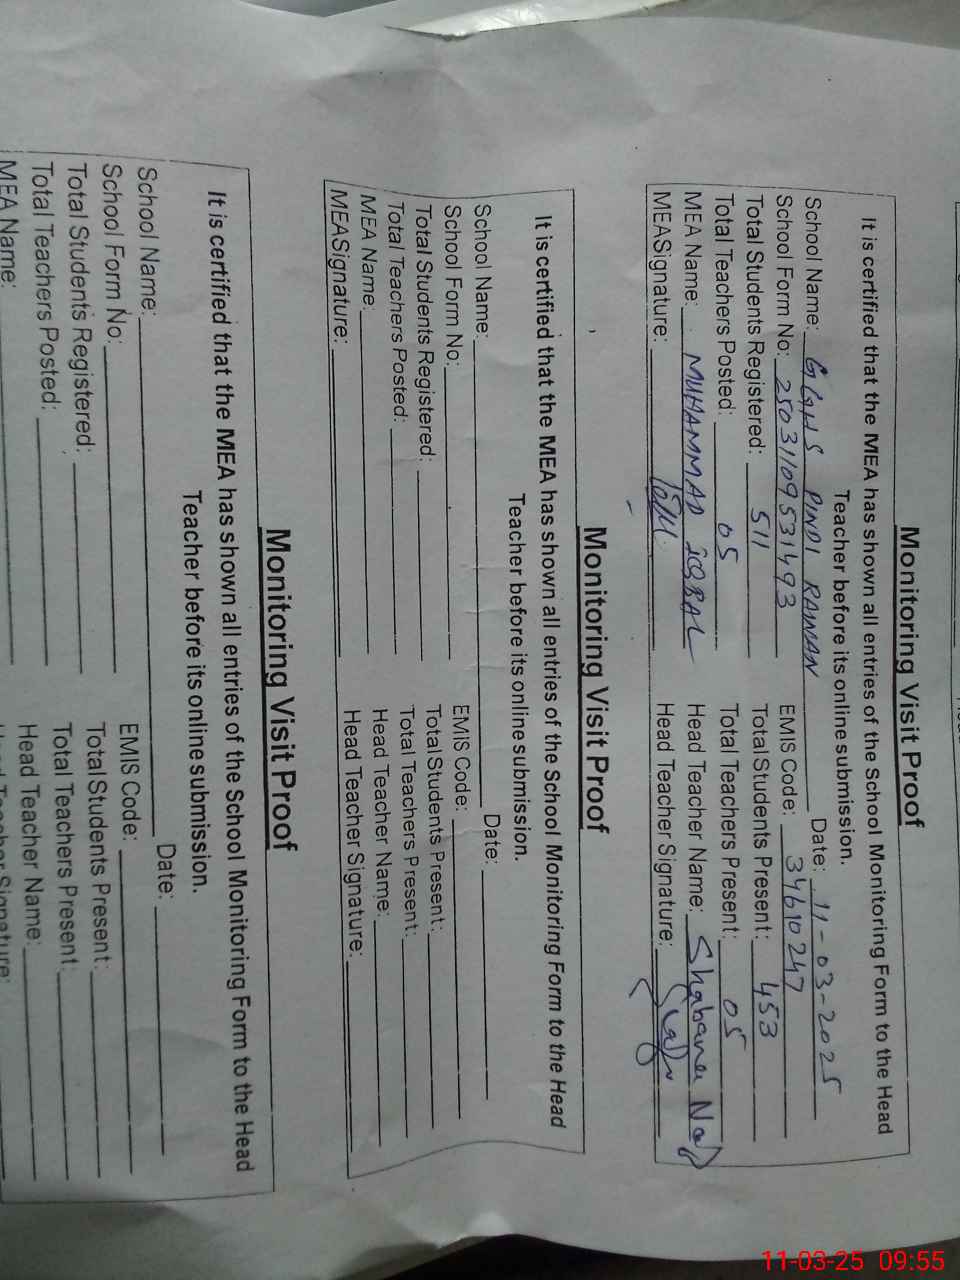 Monitoring Visit Proof
It is certified that the MEA has shown all entries of the School Monitoring Form to the Head
Teacher before its online submission.
School Name: GGHS PINDI RAIMAN Date: 11-03-2025
School Form No: 25031109531493 EMIS Code: 34610247
Total Students Registered: 511 Total Students Present: 453
Total Teachers Posted: 05 Total Teachers Present: 05
MEA Name: MUHAMMAD IQBAL Head Teacher Name: Shabana
MEASignature: Head Teacher Signature:
Monitoring Visit Proof
It is certified that the MEA has shown all entries of the School Monitoring Form to the Head
Teacher before its online submission.
School Name: Date:
School Form No: EMIS Code:
Total Students Registered: Total Students Present:
Total Teachers Posted: Total Teachers Present:
MEA Name: Head Teacher Name:
MEASignature: Head Teacher Signature:
Monitoring Visit Proof
It is certified that the MEA has shown all entries of the School Monitoring Form to the Head
Teacher before its online submission.
School Name: Date:
School Form No: EMIS Code:
Total Students Registered: Total Students Present:
Total Teachers Posted: Total Teachers Present:
MEA Name: Head Teacher Name:
Head Teacher Signature:
11-03-25 09:55